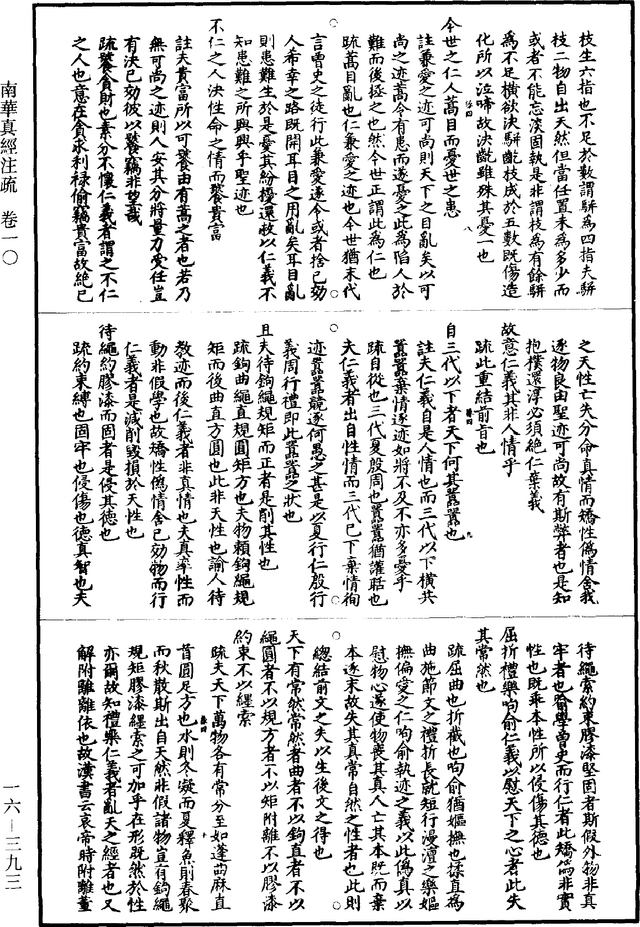 枝生六指也不足於數謂駢為四指夫駢
枝二物自出天然但當任置未為多少而
或者不能忘淡固執是非謂枝為有餘駢
為不足橫欲決駢齕枝成於五數既傷造
化所以泣啼故決齕雖殊其憂一也
今世之仁人蒿目而憂世之患
註兼愛之迹可尚則天下之目亂矣以可
尚之迹蒿令有患而遂憂之此為陷人於
難而後拯之也然今世正謂此為仁也
疏蒿目亂也仁兼愛之迹也今世猶末代
言曾史之徒行此兼愛遂令或者捨己効
人希幸之路既開耳目之用亂矣耳目亂
則患難生於是憂其紛擾還救以仁義不
知患難之所興興乎聖迹也
不仁之人決性命之情而饕貴富
註夫貴富所以可饕由有蒿之者也若乃
無可尚之迹則人安其分將量力受任豈
有決已効彼以饕竊非望哉
疏饕貪財也素分不懷仁義者謂之不仁
之人也意在貪求利祿偷竊貴富故絕已
之天性亡失分命真情而矯性偽情舍我
逐物良由聖迹可尚故有斯弊者也是知
抱樸還淳必須絕仁棄義
故意仁義其非人情乎
疏此重結前旨也
自三代以下者天下何其囂囂也
註夫仁義自是人情也而三代以下橫共
囂囂棄情逐迹如將不及不亦多憂乎
疏自從也三代夏殷周也囂囂猶讙聒也
夫仁義者出自性情而三代已下棄情徇
迹囂囂競逐何愚之甚是以夏行仁殷行
義周行禮即此囂囂之狀也
且夫待鉤繩規矩而正者是削其性也
疏鉤曲繩直規圓矩方也夫物賴鉤繩規
矩而後曲直方圓也此非天性也諭人待
教迹而後仁義者非真情也夫真率性而
動非假學也故矯性偽情舍己効物而行
仁義者是減削毀損於天性也
待繩約膠漆而固者是侵其德也
疏約束縛也固牢也侵傷也德真智也夫
待繩索約束膠漆堅固者斯假外物非真
牢者也喻學曾史而行仁者此矯偽非實
性也既乖本性所以侵傷其德也
屈折禮樂呴俞仁義以慰天下之心者此失
其常然也
疏屈曲也折截也呴俞猶嫗撫也揉直為
曲施節文之禮折長就短行漫澶之樂嫗
撫偏愛之仁呴俞執迹之義以此偽真以
慰物心遂使物喪其真人亡其本既而棄
本逐末故失其真常自然之性者也此則
總結前文之失以生後文之得也
天下有常然常然者曲者不以鉤直者不以
繩圓者不以規方者不以矩附離不以膠漆
約束不以纆索
疏夫天下萬物各有常分至如蓬曲麻直
首圓足方也水則冬凝而夏釋魚則春聚
而秋散斯出自天然非假諸物豈有鉤繩
規矩膠漆纆索之可加乎在形既然於性
亦爾故知禮樂仁義者亂天之經者也又
解附離離依也故漢書云哀帝時附離董
南華真經注疏 卷一〇
一六—三九三